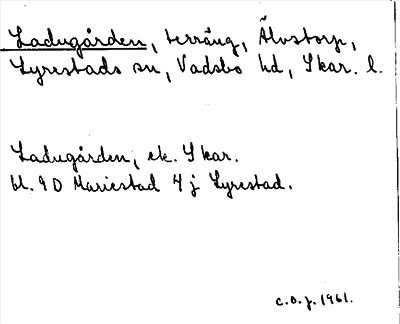 Ladugården, terräng, Älvstorp,
Lyrestads sn, Vadsbo hd, Skar. l.
Ladugården, ek. Skar.
bl. 9D Mariestad 4j Lyrestad.
c.o.j. 1961.